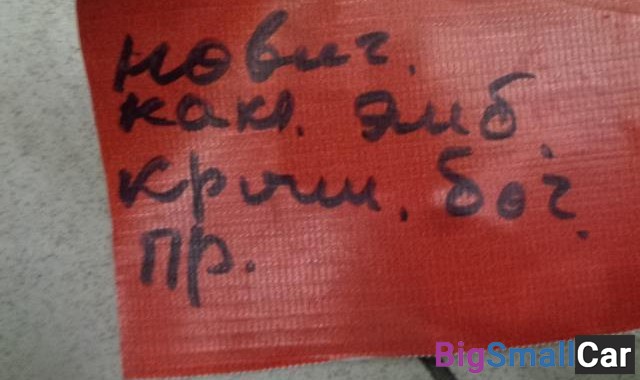 новиг.
накл. эмб.
крыш. бог.
пр.
BigSmallCar